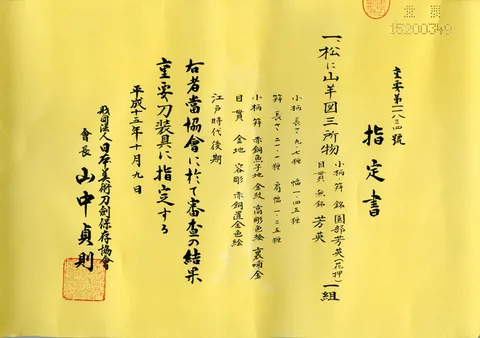 15200349
重要第一一八三四號
指定書
一、松に山羊図三所物 小柄 笄 銘 園部芳英(花押) 一組
目貫 無銘 芳英
小柄 長さ 九・七糎 幅 一・四五糎
笄 長さ 二一・一糎 肩幅 一・二五糎
小柄 笄 赤銅魚子地 金紋 高彫色絵 裏哺金
目貫 金地 容彫 赤銅置金色絵
江戸時代後期
右者當協會に於て審査の結果
重要刀装具に指定する
平成十五年十月九日
財団法人日本美術刀剣保存協會
會長 山中貞則